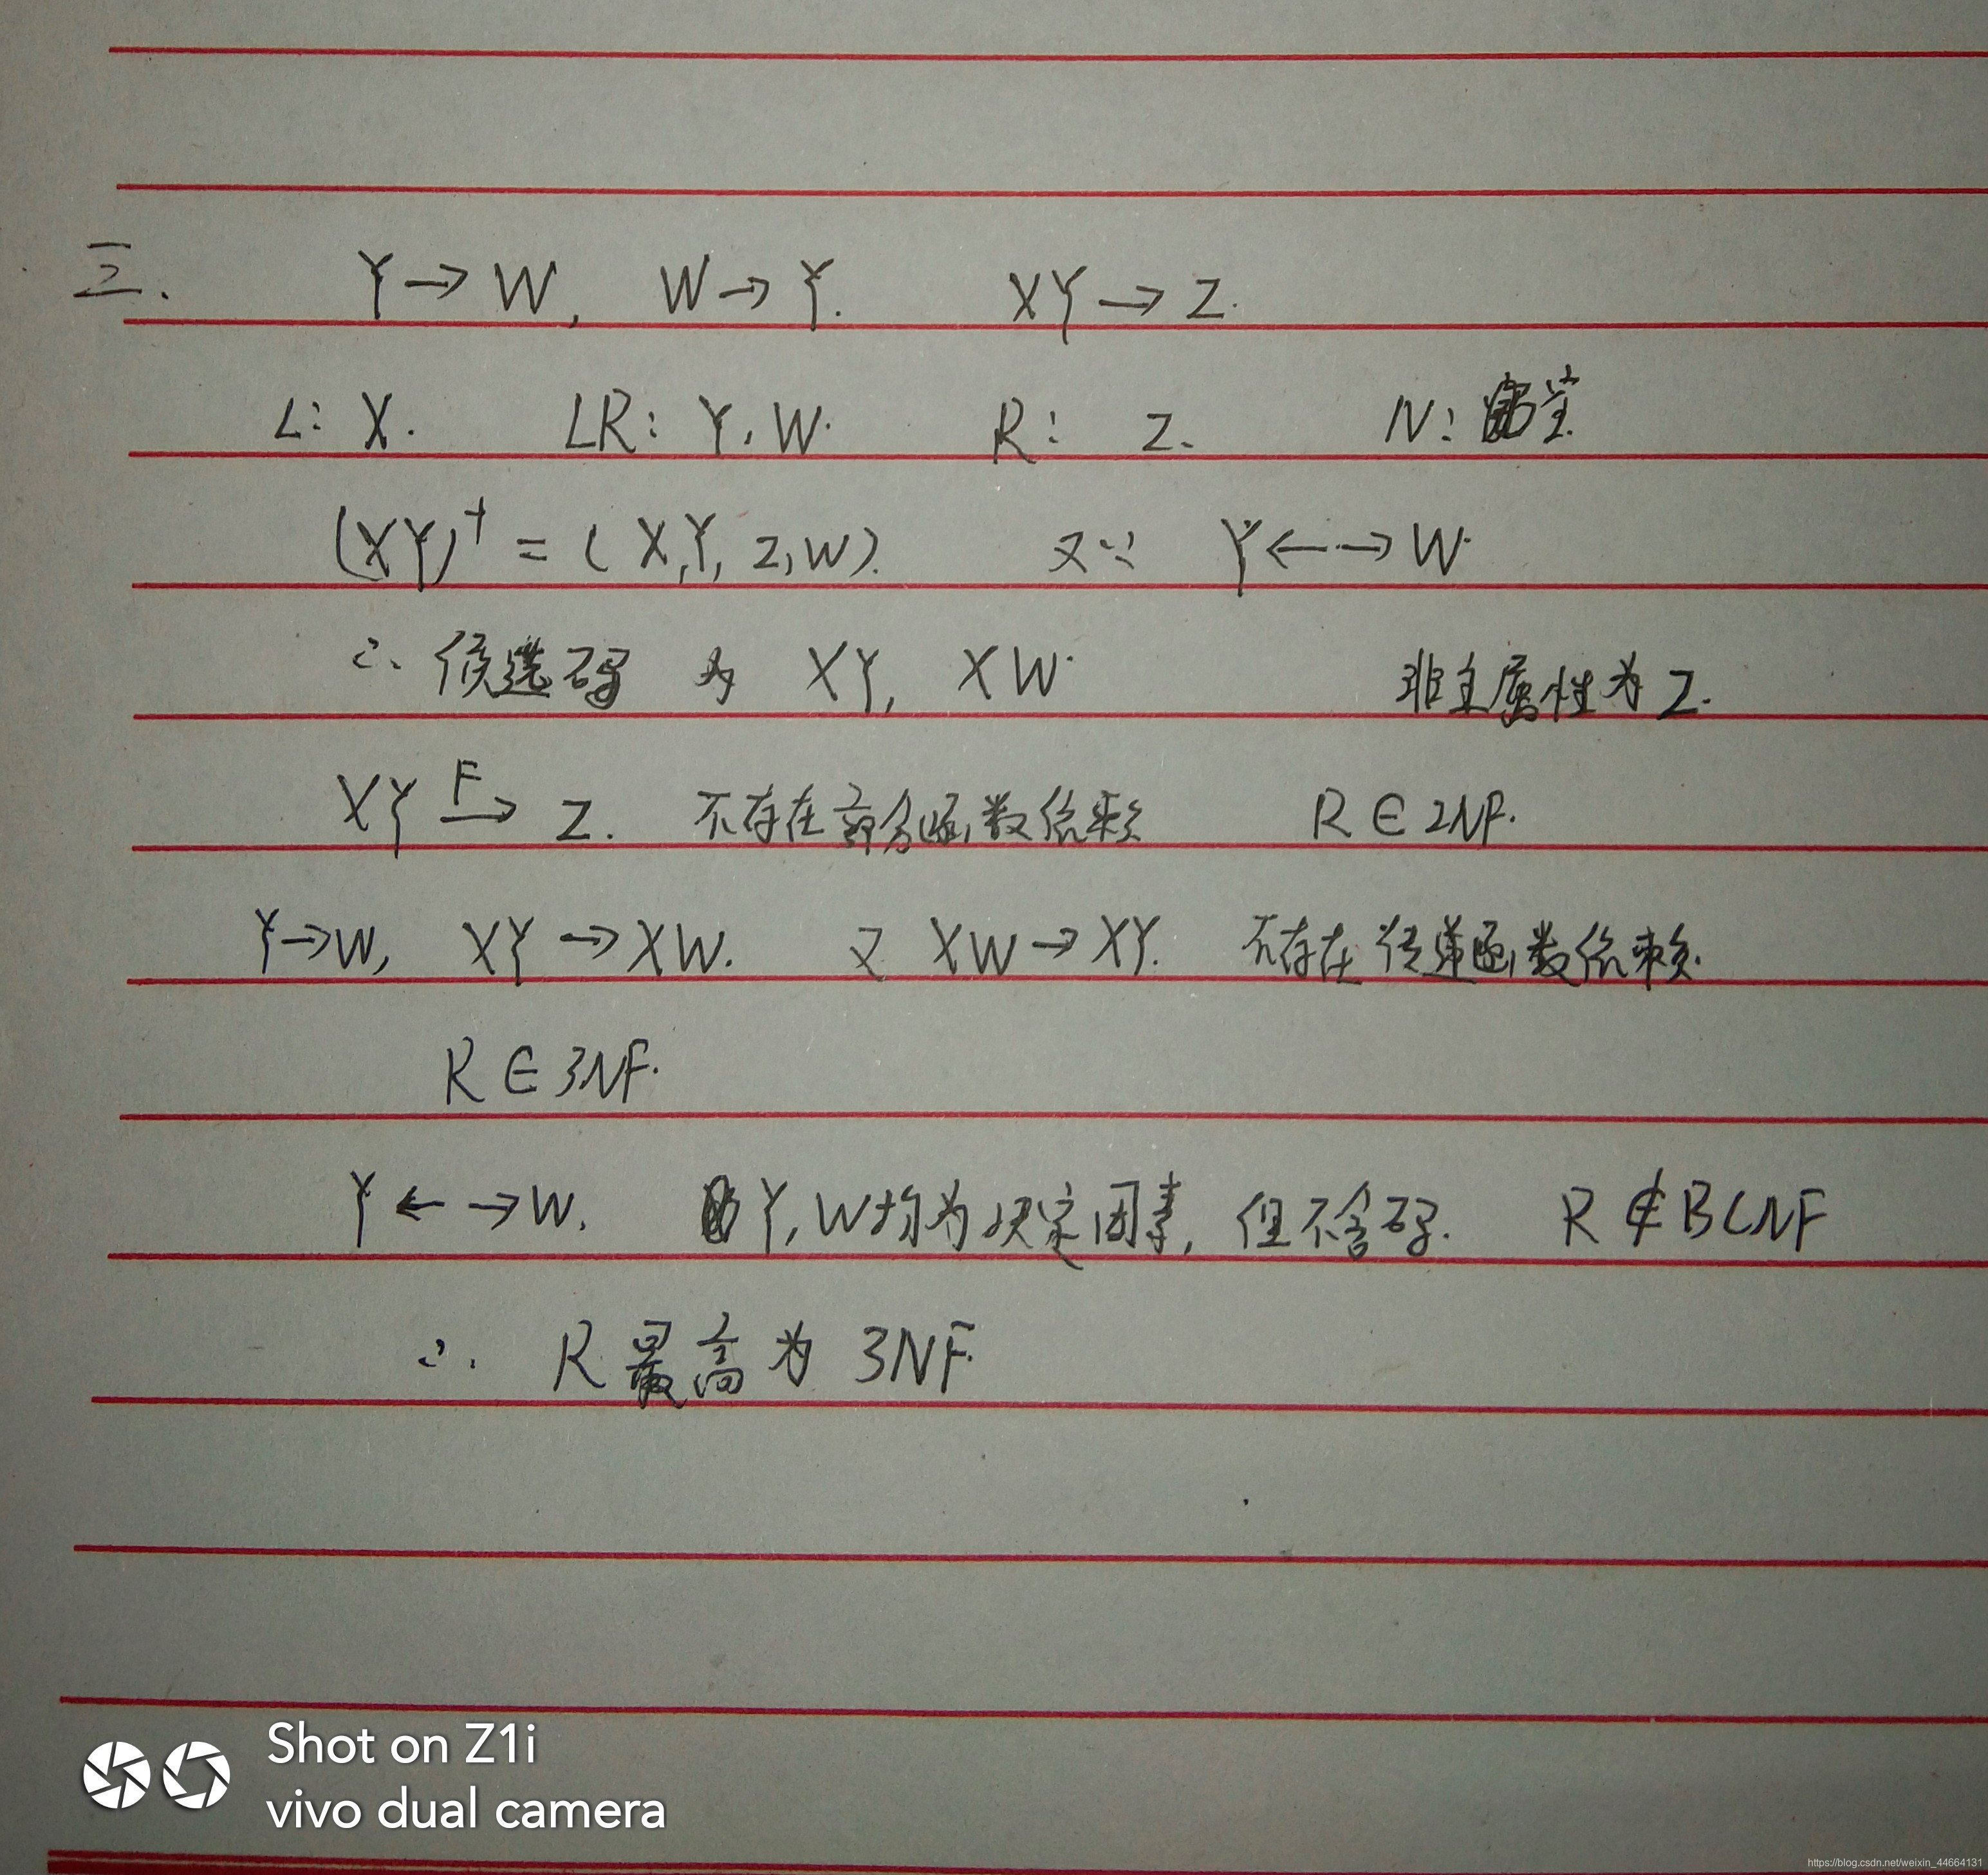 三. Y→W, W→Y. XY→Z.
L: X. LR: Y, W. R: Z. N: 空.
(XY)⁺ = (X,Y,Z,W). 又∵ Y←→W.
∴ 候选码 为 XY, XW. 非主属性为Z.
XY F→ Z. 不存在部分函数依赖 R∈2NF.
Y→W, XY→XW. 又 XW→XY. 不存在传递函数依赖.
R∈3NF.
Y←→W. Y,W均为决定因素, 但不含码. R∉BCNF
∴. R最高为 3NF.
Shot on Z1i
vivo dual camera
https://blog.csdn.net/weixin_44664131